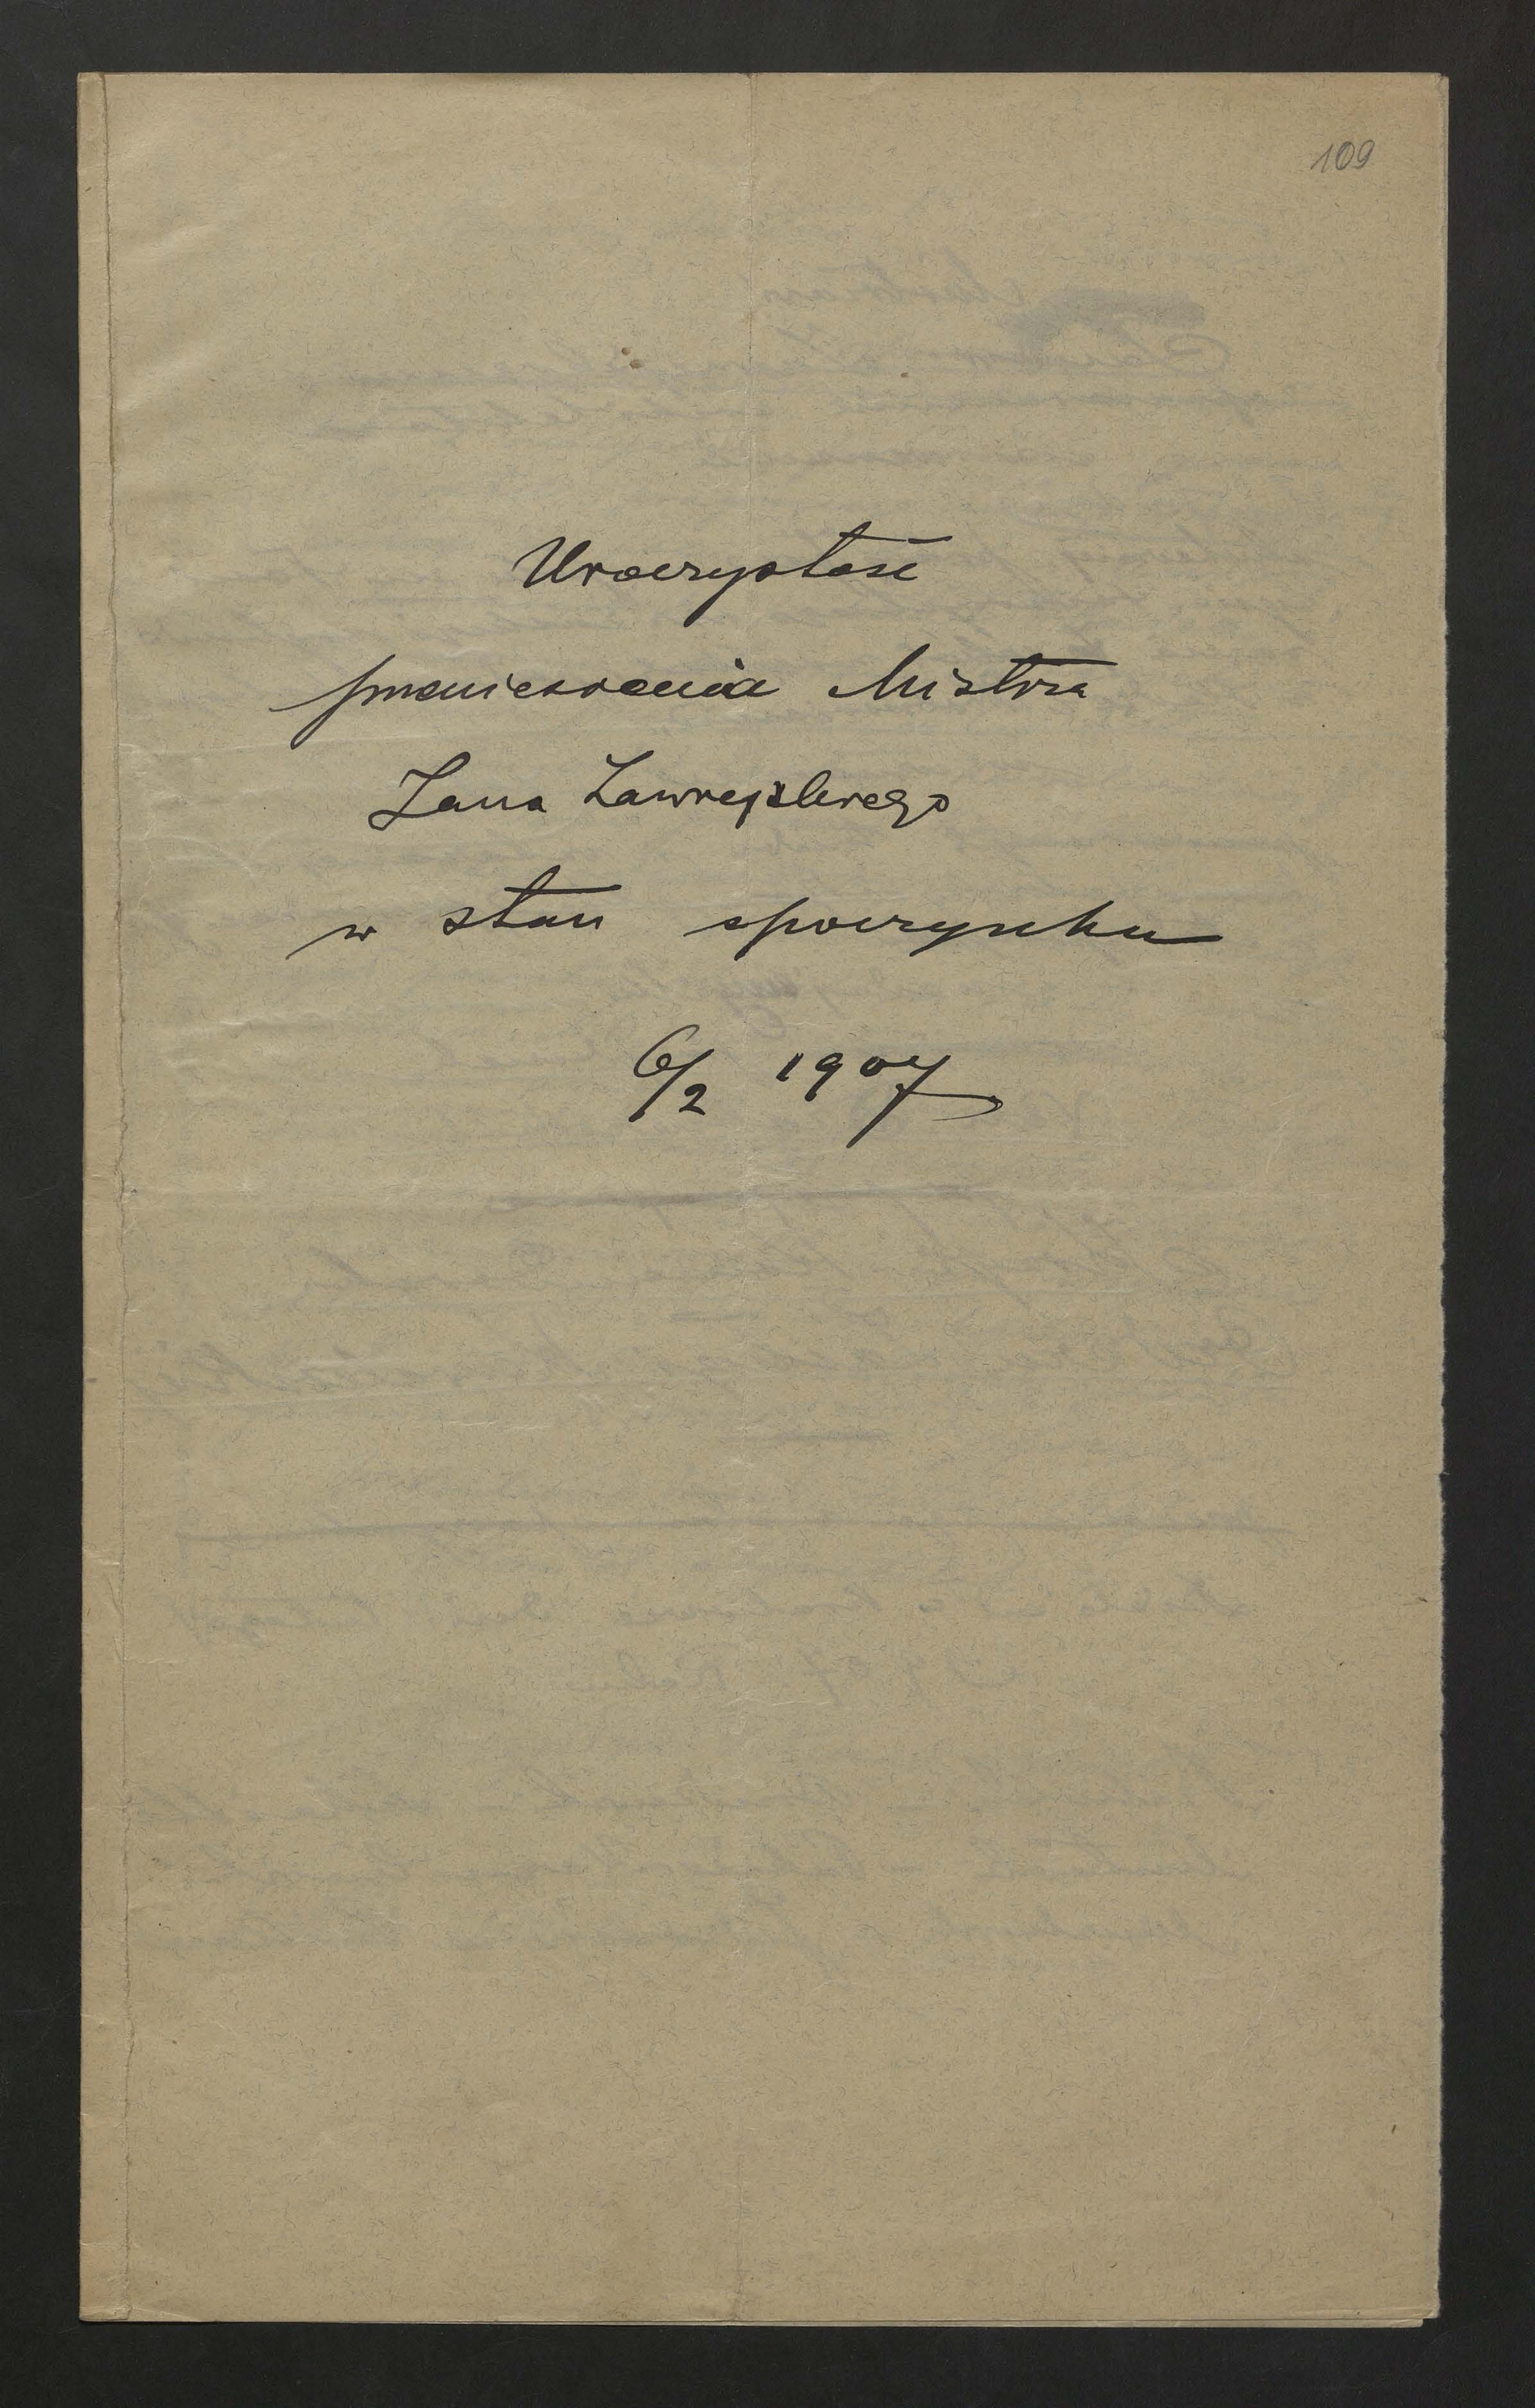 109
Uroczystość
przeniesienia Mistrza
Jana Zawiejskiego
w stan spoczynku
6/2 1907